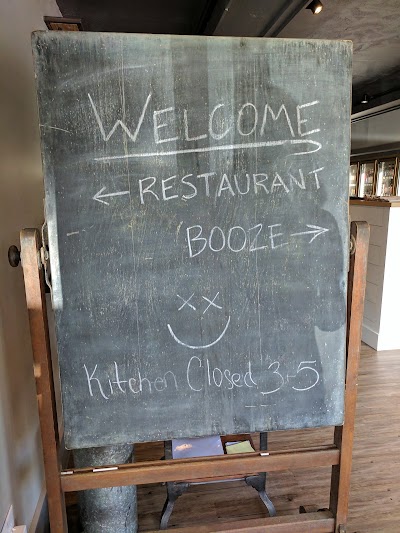 WELCOME
← RESTAURANT
BOOZE →
x x
Kitchen Closed 3-5